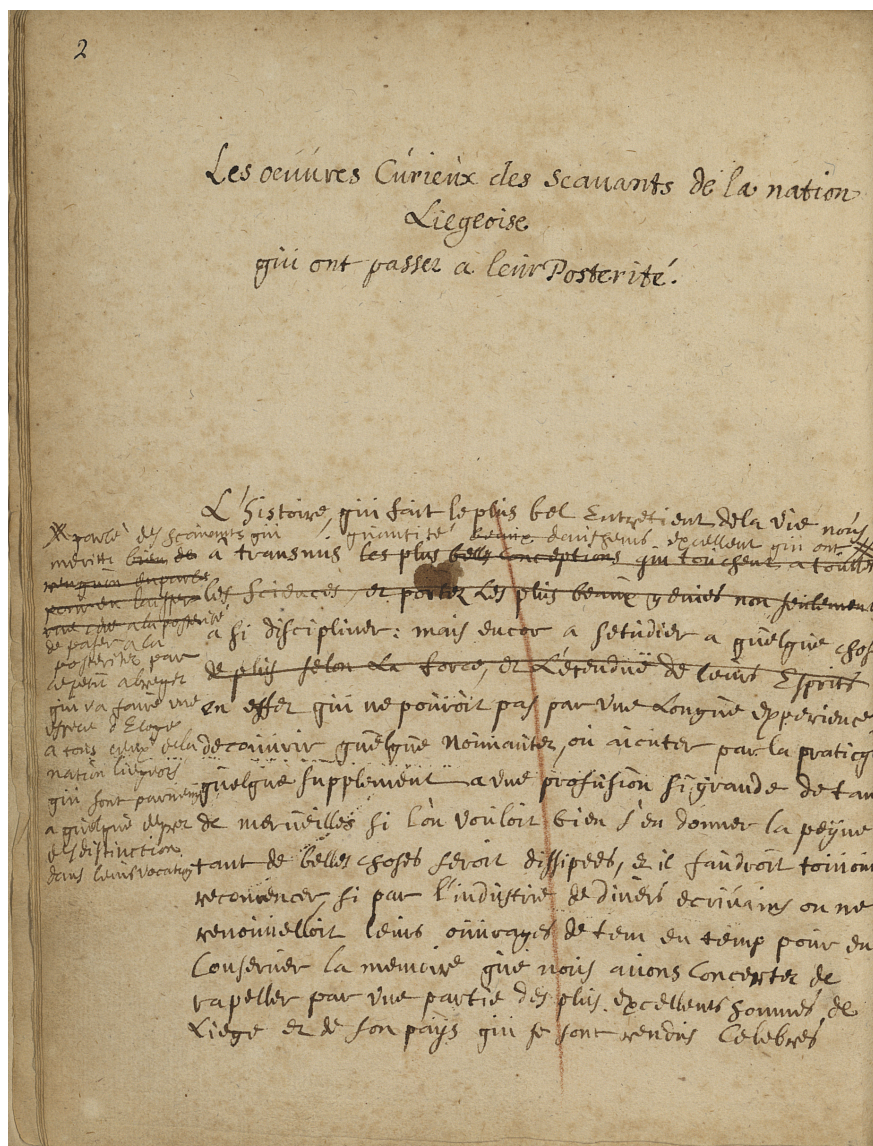 2
Les oeuures Curieux des scauants de la nation
Liegeoise
qui ont passer a leur Posterité.
L'histoire, qui fait le plus bel Entretient dela vie nous
quantité beaux excellent qui ont
a transmis les plus belles conceptions qui touchent a toutes
les sciences, et portez Les plus beaux genies non seulement
a si discipliner: mais encor a setudier a quelque chos
de plus selon La force, et L'étenduë de leurs Esprits
en effet qui ne pouroit pas par vne Longue experience
decouurir quelque nouuautez, ou aiouter par la praticq
quelque supplement a vne profusion si grande de tan
de merueilles si l'on vouloit bien s'en donner la peyne
tant de belles choses seroit dissipeés, et il faudroit toujour
recommencer, si par l'industrie de diuers ecriuains on ne
renouuelloit leurs ouurages de tem en temp pour en
Conseruer la memoire que nous auons Concerter de
rapeller par vne partie des plus excellents hommes de
Liege et de son pays qui se sont rendus Celebres
parlé des scauants qui
meritti bien de
a la posterité
de passer a la
posterité, par
qui va faire vne
espece d'Eloge
a tous ceux dela
nation liegeois
qui sont paruenu
a quelque
de distinction
dans leurs vocation